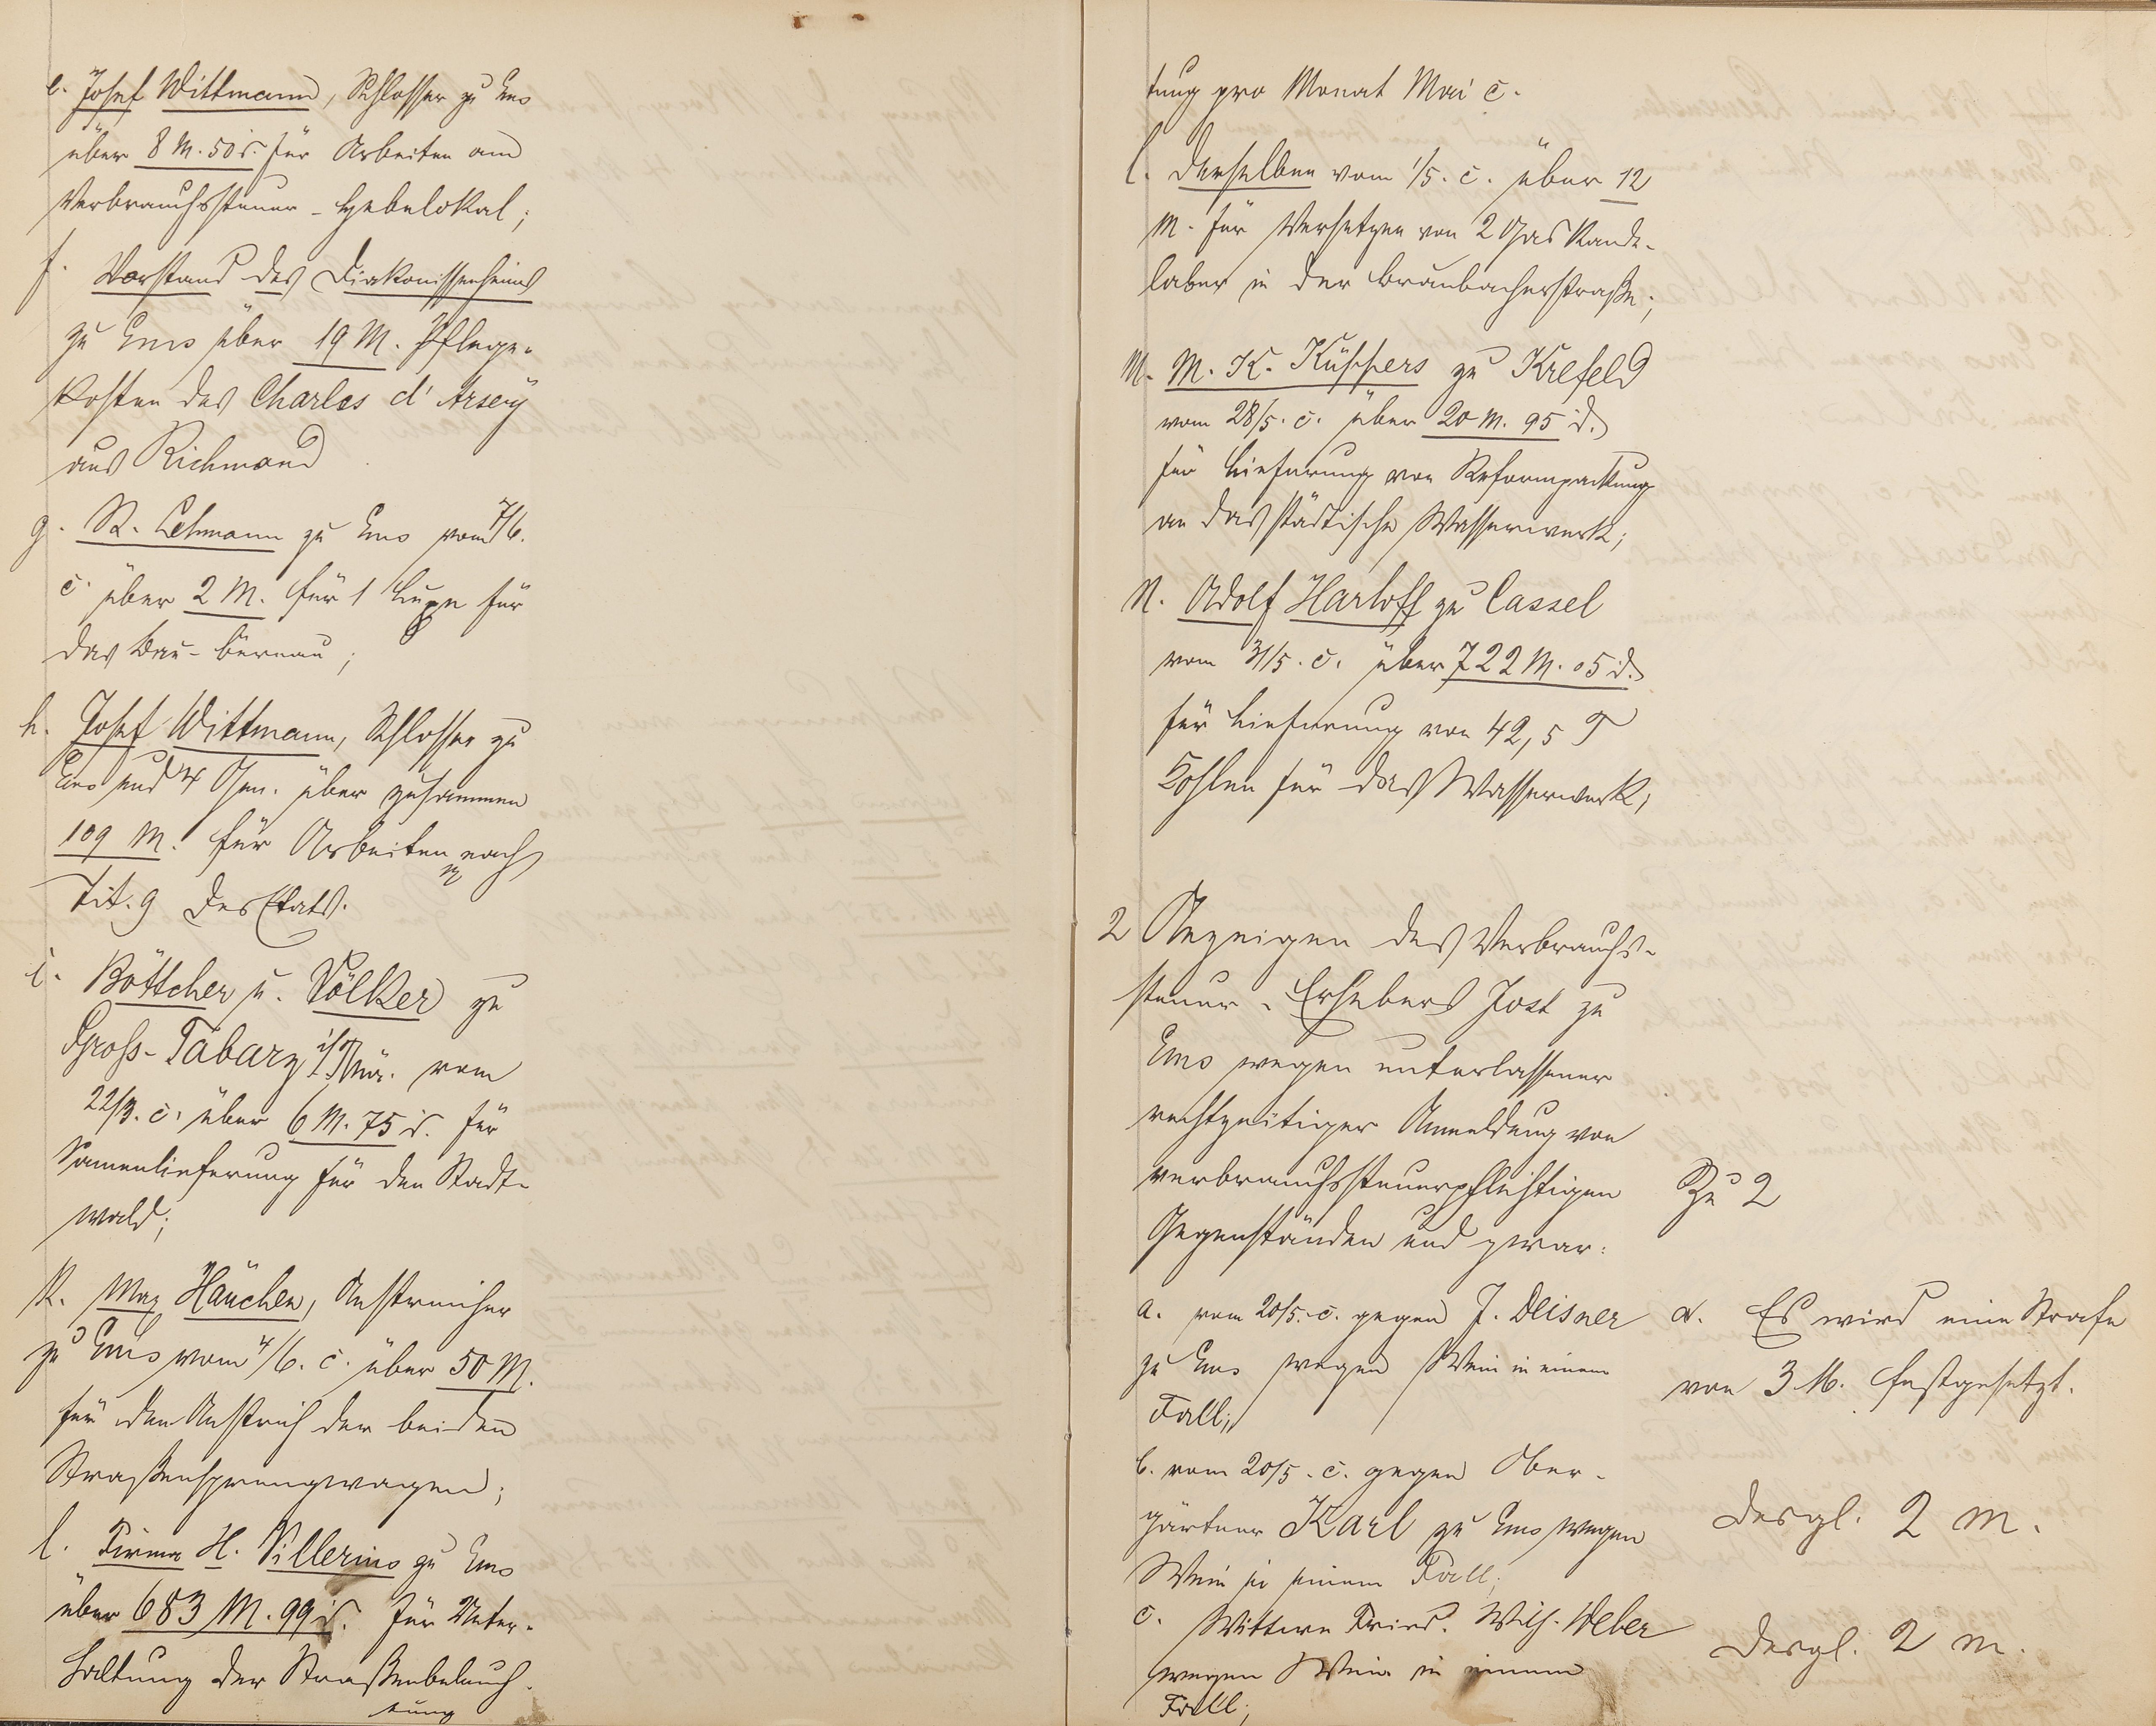 e. Josef Wittmann, Schlosser zu Ems
über 8 M. 50 d. für Arbeiten am
Verbrauchssteuer-Hebelokal;
f. Vorstand des Diakonissenheims
zu Ems über 19 M. Pflege-
kosten des Charles d'Arsey
aus Richmond
g. R. Lehmann zu Ems vom 7/6.
c. über 2 M. für 1 Lupe für
das Bau-Büreau;
h. Josef Wittmann, Schlosser zu
Ems und 4 Gen. über zusammen
109 M. für Arbeiten nach
Tit. 9 des Etats.
i. Böttcher u. Völker zu
Gross-Tabarz i/Thür. vom
22/3. c. über 6 M. 75 d. für
Samenlieferung für den Stadt-
wald;
k. Max Häuchen, Anstreicher
zu Ems vom 4/6. c. über 50 M.
für den Anstrich der beiden
Straßensprengwagen;
l. Firma H. Villerius zu Ems
über 683 M. 99 d. für Unter-
haltung der Straßenbeleuch-
tung
tung pro Monat Mai c.
l. derselben vom 1/5. c. über 12
M. für Versetzen von 2 Gas Kande-
laber in der Braubacherstraße;
M. M. K. Küppers zu Krefeld
vom 28/5. c. über 20 M. 95 d.
für Lieferung von Reformpackung
an das städtische Wasserwerk;
N. Adolf Harloff zu Cassel
vom 31/5. c. über 722 M. 05 d.
für Lieferung von 42,5 T
Kohlen für das Wasserwerk;
2 Anzeigen des Verbrauchs-
steuer-Erhebers Jost zu
Ems wegen unterlassener
rechtzeitiger Anmeldung von
verbrauchssteuerpflichtigen
Gegenständen und zwar:
Zu 2
a. vom 20/5. c. gegen J. Deisner
zu Ems wegen Wein in einem
Fall;
a. Es wird eine Strafe
von 3 M. festgesetzt.
b. vom 20/5. c. gegen Ober-
gärtner Karl zu Ems wegen
Wein in einem Fall;
desgl. 2 M.
c. Wittwe Fried. Wilh. Weber
wegen Wein in einem
Fall;
desgl. 2 M.